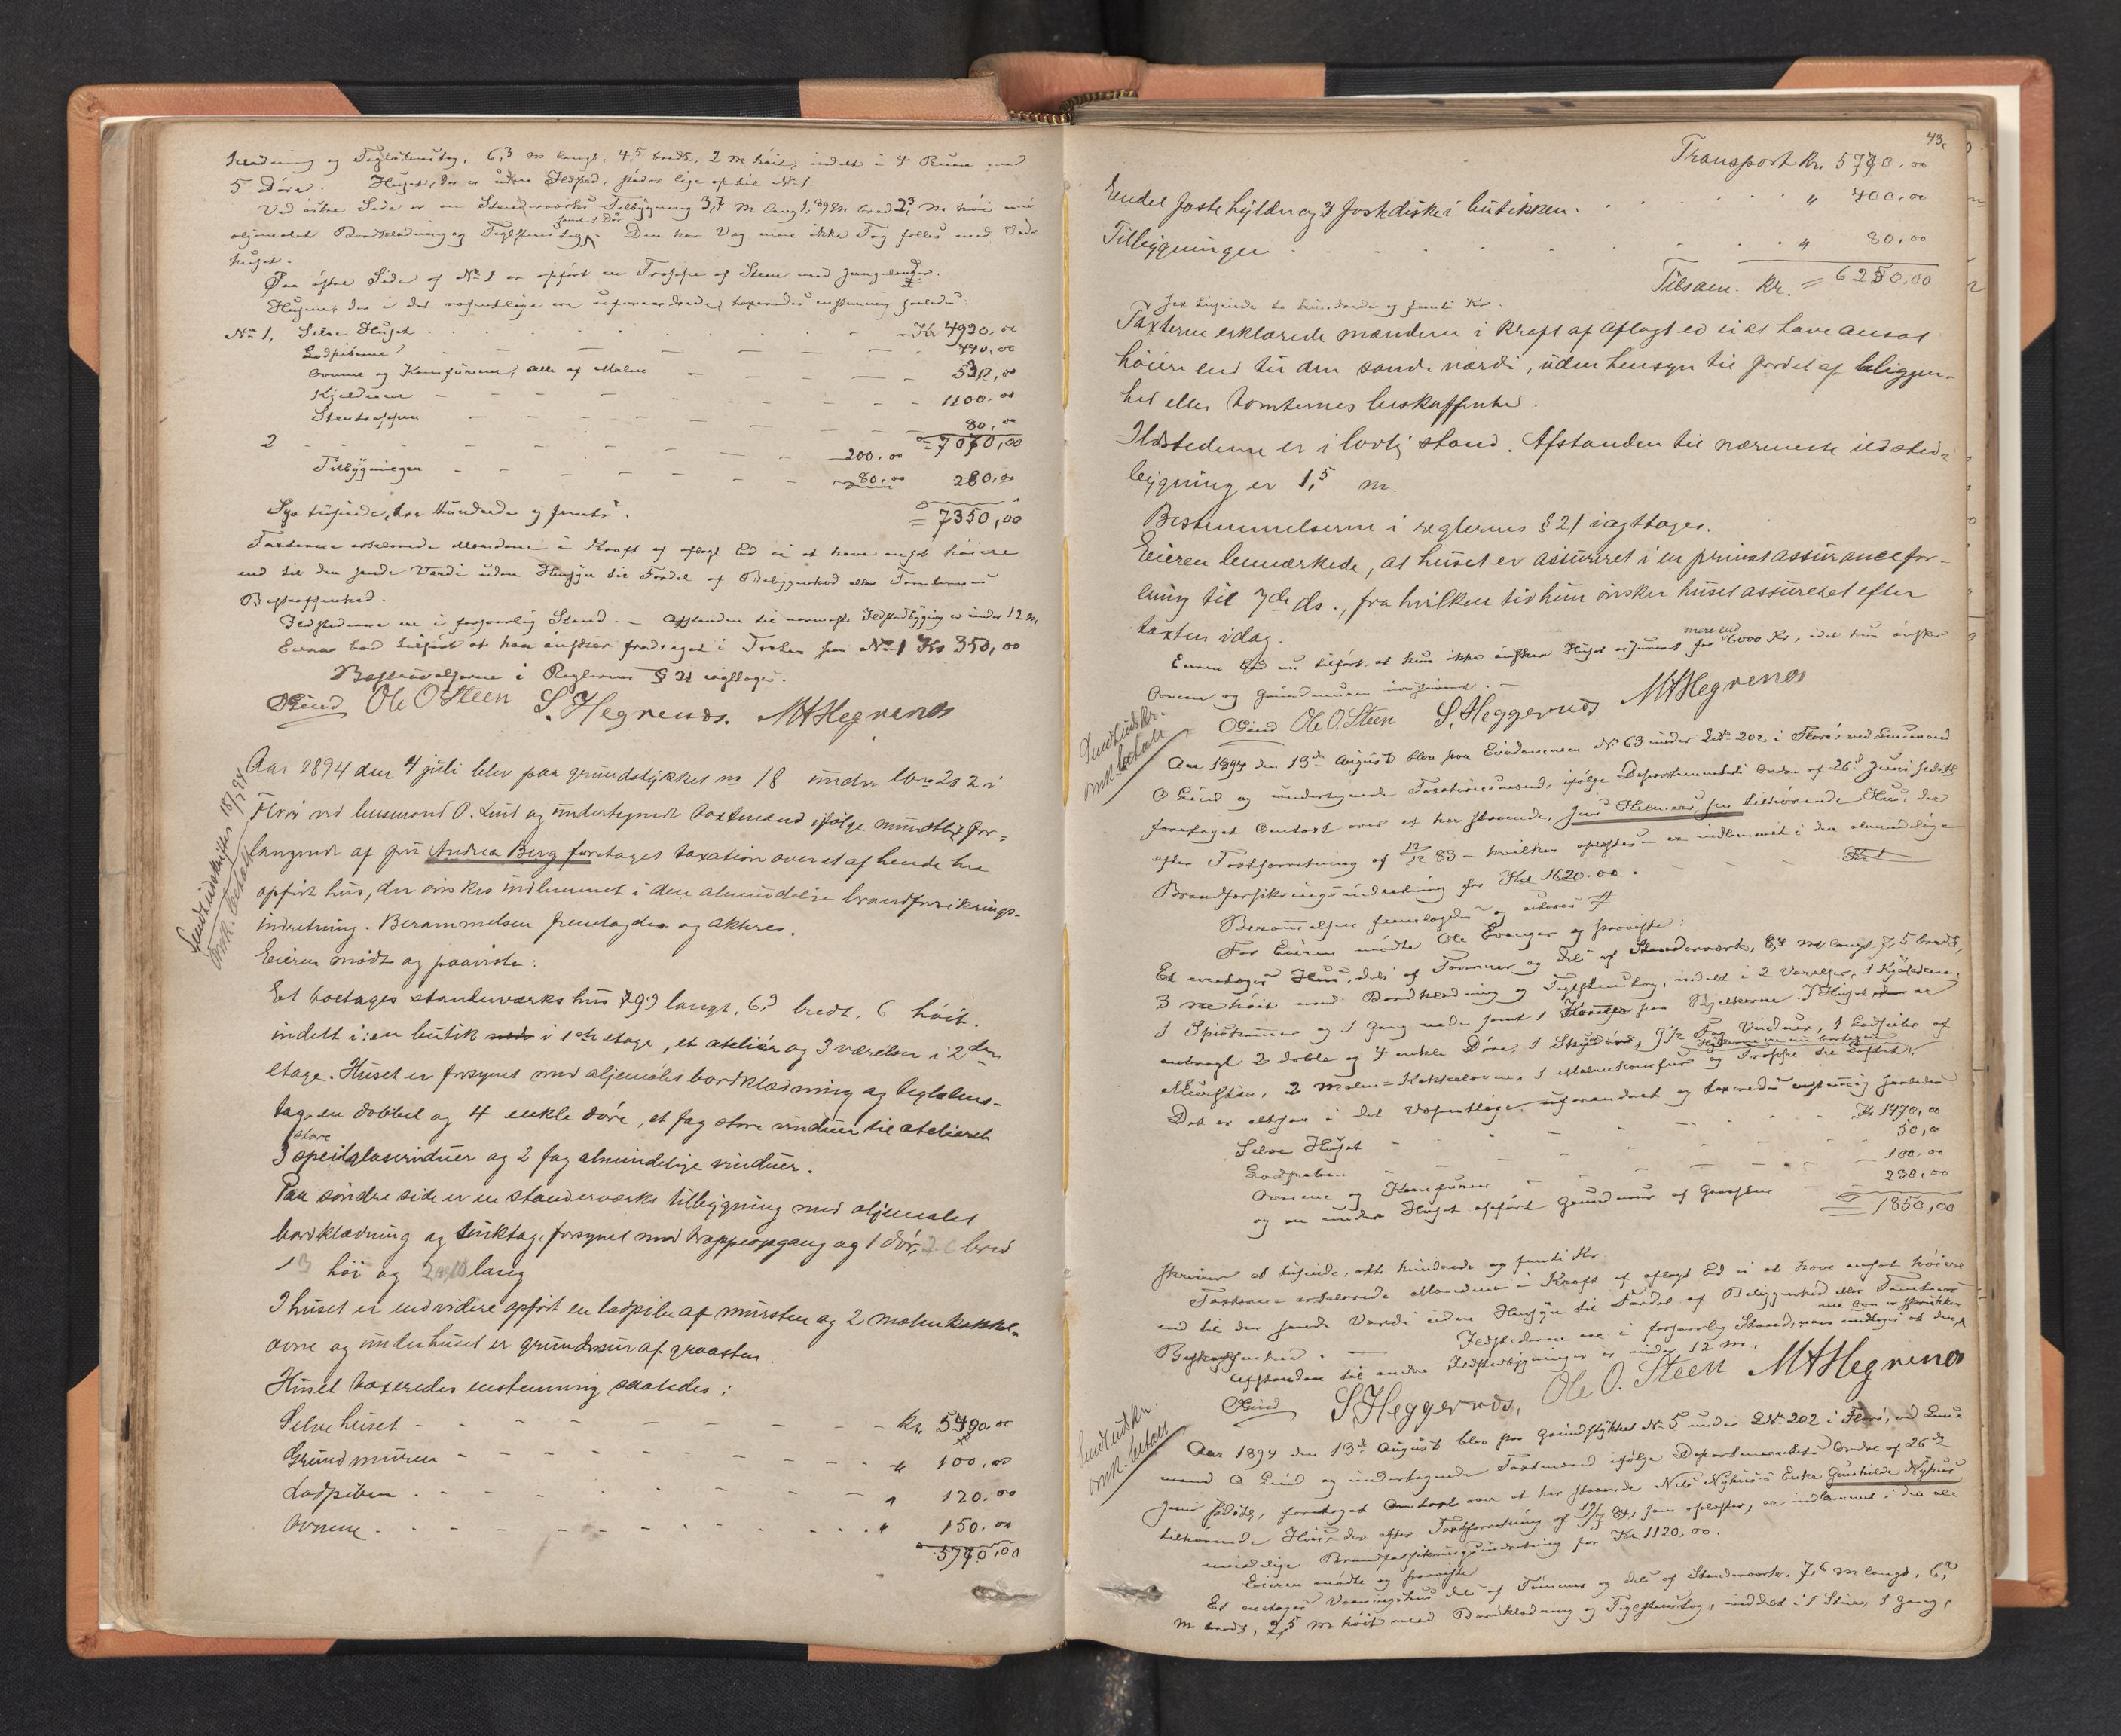 klædning og Teglstenstag, 6,3 m langt, 4,5 bredt, 2 m höit, indelt i 4 Rum med
5 Döre. Huset, der er uden Ildsted, støder lige op til No 1.
Ved östre Side er en Standerværks Tilbygning 3,7 m lang 1,89 m bred 2,3 m höi med
samt 1 Dör
oljemalet Bordklædning og Teglstenstag. Den har Væg men ikke Tag fælles med
huset.
Paa östre Side af No 1 er opført en Trappe af Sten med
Husene, der i det væsentlige ere uforandrede, taxeredes enstemmig saaledes:
No 1, Selve Huset Kr 4920.00
Lodpiberne 440,00
Ovnene og Komfurene, alle af Malm 530,00
Kjeldrene 1100.00
Stentrappen 80,00
= 7070,00
2 200.00
Tilbygningen 80,00 280,00
= 7350,00
Syv tusinde, tre Hundrede og femti.
Taxterne erklærede Mændene i Kraft af aflagt Ed ei at have ansat höiere
end til den sande Værdi uden Hensyn til Fordel af Beliggenhed eller Tomternes
Beskaffenhed.
Ildstederne ere i forsvarlig Stand. – Afstanden til nærmeste Ildstedbygning er under 12 m
Eieren bad tilført at han önsker fradraget i Taxten for No 1 Kr 350,00
Bestemmelserne i Reglernes § 21 iagttages.
OLind Ole O Steen S. Hegrenæs. MAHegrenæs
Sendt udskrifter 18/7 94
Omk. betalt
Aar 1894 den 4 juli blev paa grundstykket no 18 under lbno 202 i
Florö ved lensmand O. Lind og undertegnede taxtmænd ifølge mundtlig for=
langende af fru Andrea Berg foretages taxation over et af hende her
opført hus, der önskes indlemmet i den almindelige brandforsikrings-
indretning. Berammelsen fremlagdes og akteres.
Eieren mödte og paaviste:
Et toetages standerværks hus 9,9 langt, 6,9 bredt, 6 höit.
indelt i: en butik i 1ste etage, et atelier og 3 værelser i 2den
etage. Huset er forsynet med oljemalet bordklædning og teglstens-
tag, en dobbel og 4 enkle döre, et fag store vinduer til atelieret
store
3 speilglasvinduer og 2 fag almindelige vinduer.
Paa söndre side er en standerværks tilbygning med oljemalet
bordklædning og sinktag, forsynet med trappeopgang og 1 dör, bred
höi og lang
I huset er endvidere opført en lodpibe af mursten og 2 malm kakkel-
ovne og under huset er grundmur af graasten.
Huset taxeredes enstemmig saaledes:
Selve huset Kr. 5490.00
Grundmuren " 100,00
Lodpiben " 120.00
Ovnene " 150.00
5790,00
43.
Transport Kr. 5790.00
Endel faste hylder og 3 fastdiske i butikken. " 400,00
Tilbygningen " 80,00
Tilsam. Kr. = 6250,00
Sex tusinde to hundrede og femti Kr.
Taxterne erklærede mændene i kraft af aflagt ed ei at have ansat
höiere end til den sande værdi, uden hensyn til fordel af beliggen-
hed eller tomternes beskaffenhed.
Ildstederne er i lovlig stand. Afstanden til nærmeste ildsted=
bygning er 1,5 m.
Bestemmelserne i reglernes § 21 iagttages.
Eieren bemærkede, at huset er assureret i en privat assurancefor-
ening til 7de ds., fra hvilken tid hun önsker huset assureret efter
taxten idag.
mere end
Eieren bad nu tilført, at hun ikke önsker Huset assureret for 6000 Kr, idet hun önsker
Ovnene og Grundmuren
OLind Ole O. Steen S. Heggernæs MAHegrenæs
Sendt udskr.
omk. betalt
Aar 1894 den 13de August blev paa Eiendommen No 63 under LNo 202 i Florö, ved Lensmand
O Lind og undertegnede Taxationsmænd, ifølge Departementets Ordre af 26de Juni sidstl.
foretaget Omtaxt over et her staaende, Jens Helmers tilhørende Hus, der
efter Taxtforretning af 12/12 83 – hvilken oplæstes – er indlemmet i den almindelige
Brandforsikringsindretning for Kr 1620.00.
Berammelsen fremlagdes og acteres
For Eieren mödte Ole Evenger og paaviste:
Et enetages Hus, dels af Tømmer og dels af Standerværk, 8,4 m langt, 7,5 bredt,
3 m höit med Bordklædning og Teglstenstag, indelt i 2 Værelser, 1 Kjökken,
1 Spiskammer og 1 Gang nede samt 1 Kammer paa Bjelkerne. I Huset er
anbragt 2 doble og 4 enkle Döre, 1 Skyvdör, 9 1/2 Fag Vinduer, 1 Lodpibe af
Mursten, 2 Malm-Kakkelovne, 1 Malmkomfur og Trappe til Loftet.
Det er altsaa i det Væsentlige uforandret og taxeredes enstemmig saaledes
Selve Huset Kr 1470,00
Lodpiben 50,00
Ovnene og Komfuren 100.00
og en under Huset opført Grundmur af Graasten 230,00
= 1850,00
skriver et tusinde, otte hundrede og femti Kr.
Taxterne erklærede Mændene i Kraft af aflagt Ed ei at have ansat höiere
end til den sande Værdi uden Hensyn til Fordel af Beliggenhed eller Tomternes
Beskaffenhed. — Ildstederne ere i forsvarlig Stand, naar undtages at den
ene ovn er sprukken
Afstanden til andre Ildstedbygninger er under 12 m.
OLind S. Heggernæs. Ole O. Steen MAHegrenæs
Sendt udskr.
omk. betalt
Aar 1894 den 13de August blev paa Grundstykket No 5 under LNo 202 i Florö, ved Lens=
mand O Lind og undertegnede Taxtmænd ifølge Departementets Ordre af 26de
Juni sidstl., foretaget Omtaxt over et her staaende Nils Nyhus's Enke Gunhilde Nyhus
tilhørende Hus, der efter Taxtforretning af 19/7 84, som oplæstes, er indlemmet i den al=
mindelige Brandforsikringsindretning for Kr 1120,00.
Eieren mödte og paaviste
Et enetages Vaaningshus dels af Tømmer og dels af Standerværk, 7,6 m langt, 6,2
m bredt, 2,5 m höit med Bordklædning og Teglstenstag, inddelt i 1 Stue, 1 Gang,